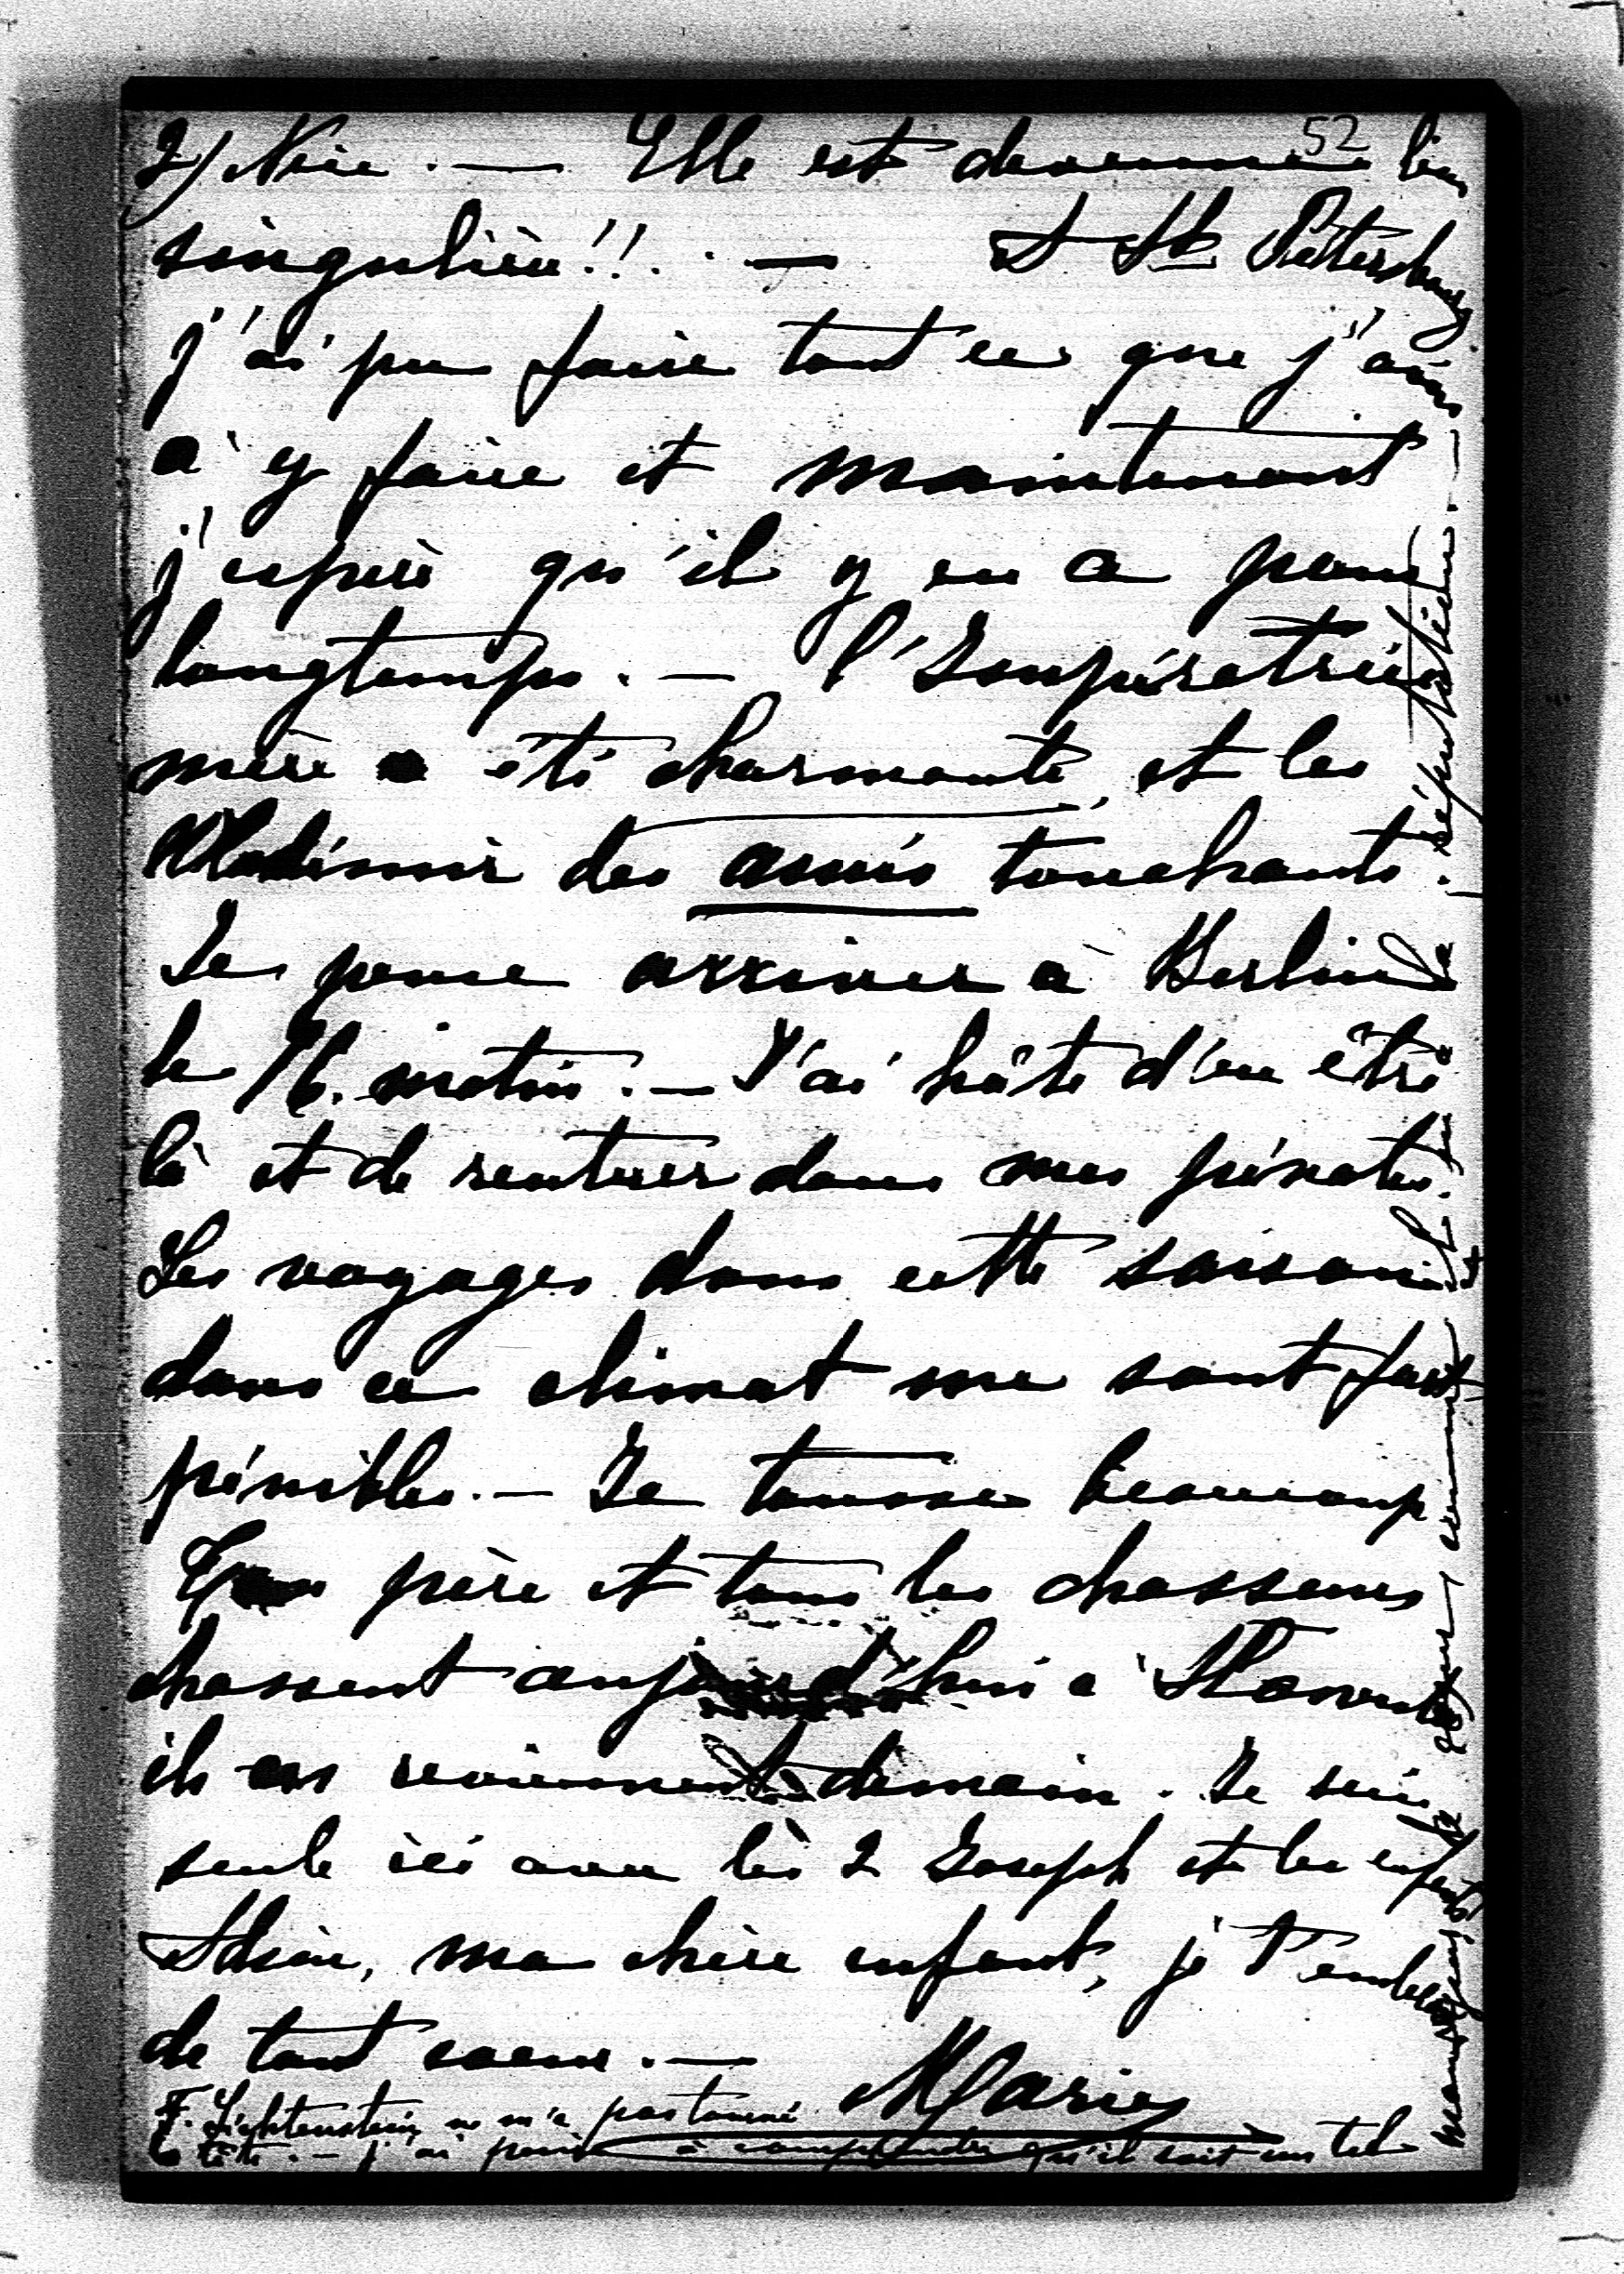 52
2) Nice. — Elle est devenue bien
singulière!!. — A St. Pétersbourg
j'ai pu faire tout ce que j'avais
à y faire et maintenant
j'espère qu'il y en a pour
longtemps. — l'Impératrice
mère a été charmante, et les
Wladimir des amis touchants. —
Je pense arriver à Berlin
le 16. matin. — J'ai hâte d'en être
là et de rentrer dans mes pénates.
Les voyages dans cette saison et
dans ce climat me sont fort
pénibles. — Je tousse beaucoup
Ton père et tous les chasseurs
chassent aujourd'hui à
ils en reviennent demain. Je suis
seule ici avec les 2 Joseph et les enfants
Adieu, ma chère enfant, je t'embrasse
de tout coeur. — Marie
F. Lichtenstein ne m'a pas tourné
la tête. — j'ai peine à comprendre qu'il soit un tel
réputation. —